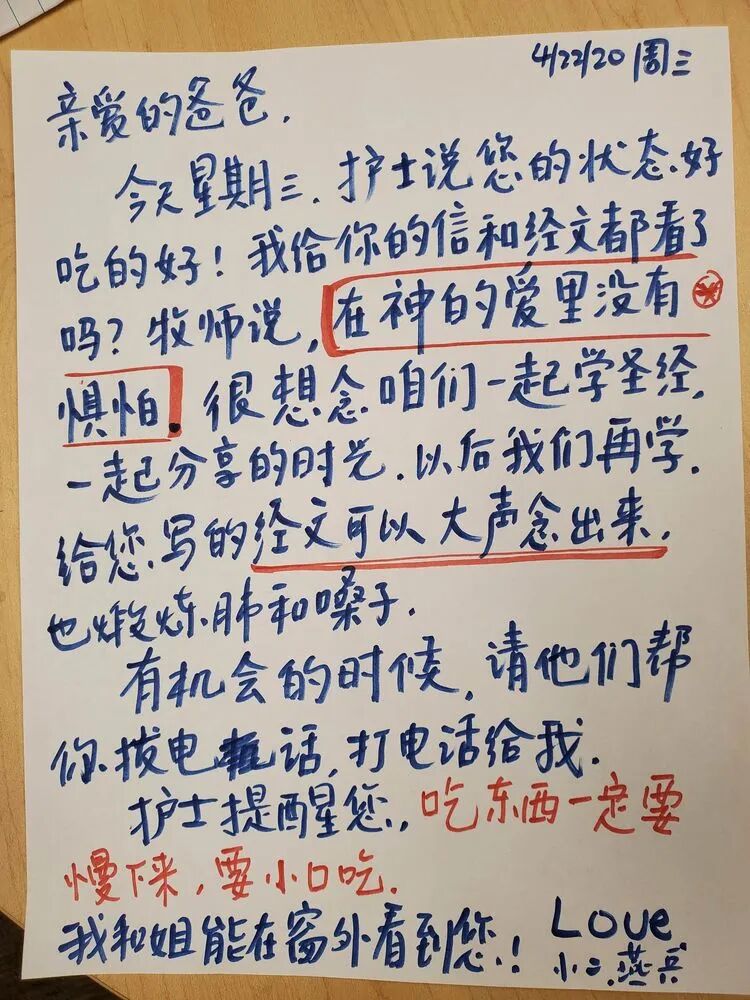 4/22/20 周三
亲爱的爸爸,
今天星期三. 护士说您的状态好
吃的好! 我给你的信和经文都看了
吗? 牧师说, 在神的爱里没有
惧怕. 很想念咱们一起学圣经,
一起分享的时光. 以后我们再学.
给您写的经文可以大声念出来,
也煅炼肺和嗓子.
有机会的时候, 请他们帮
你拔电话, 打电话给我.
护士提醒您, 吃东西一定要
慢下来, 要小口吃.
我和姐能在窗外看到您!
Love
小三燕兵